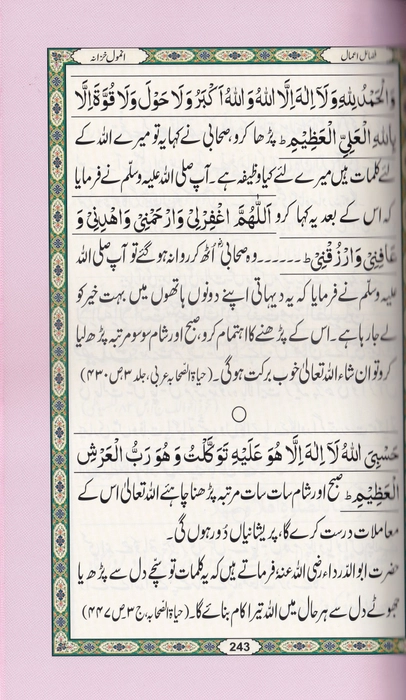 فضائل اعمال
انمول خزانہ
وَالْحَمْدُ لِلّٰهِ وَلَآ اِلٰهَ اِلَّا اللّٰهُ وَاللّٰهُ اَكْبَرُ وَلَا حَوْلَ وَلَا قُوَّةَ اِلَّا
بِاللّٰهِ الْعَلِيِّ الْعَظِيْمِ ط پڑھا کرو، صحابی نے کہا یہ تو میرے اللہ کے
لئے کلمات ہیں میرے لئے کیا وظیفہ ہے۔ آپ صلی اللہ علیہ وسلّم نے فرمایا
کہ اس کے بعد یہ کہا کرو اَللّٰهُمَّ اغْفِرْ لِيْ وَارْحَمْنِيْ وَاهْدِنِيْ وَ
عَافِنِيْ وَارْزُقْنِيْ ط ------ وہ صحابیؓ اُٹھ کر روانہ ہو گئے تو آپ صلی اللہ
علیہ وسلّم نے فرمایا کہ یہ دیہاتی اپنے دونوں ہاتھوں میں بہت خیر کو
لے جا رہا ہے۔ اس کے پڑھنے کا اہتمام کرو، صبح اور شام سو سو مرتبہ پڑھ لیا
کرو تو ان شاء اللہ تعالیٰ خوب برکت ہوگی۔ (حیاۃ الصّحابہ عربی، جلد ۳ ص ۴۳۰)
حَسْبِيَ اللّٰهُ لَآ اِلٰهَ اِلَّا هُوَ عَلَيْهِ تَوَكَّلْتُ وَهُوَ رَبُّ الْعَرْشِ
الْعَظِيْمِ ط صبح اور شام سات سات مرتبہ پڑھنا چاہئے اللہ تعالیٰ اس کے
معاملات درست کرے گا، پریشانیاں دُور ہوں گی۔
حضرت ابوالدّرداء رضی اللہ عنہٗ فرماتے ہیں کہ یہ کلمات تو سچّے دل سے پڑھ یا
جھوٹے دل سے ہر حال میں اللہ تیرا کام بنائے گا۔ (حیاۃ الصّحابہ، ج ۳ ص ۴۴۷)
243